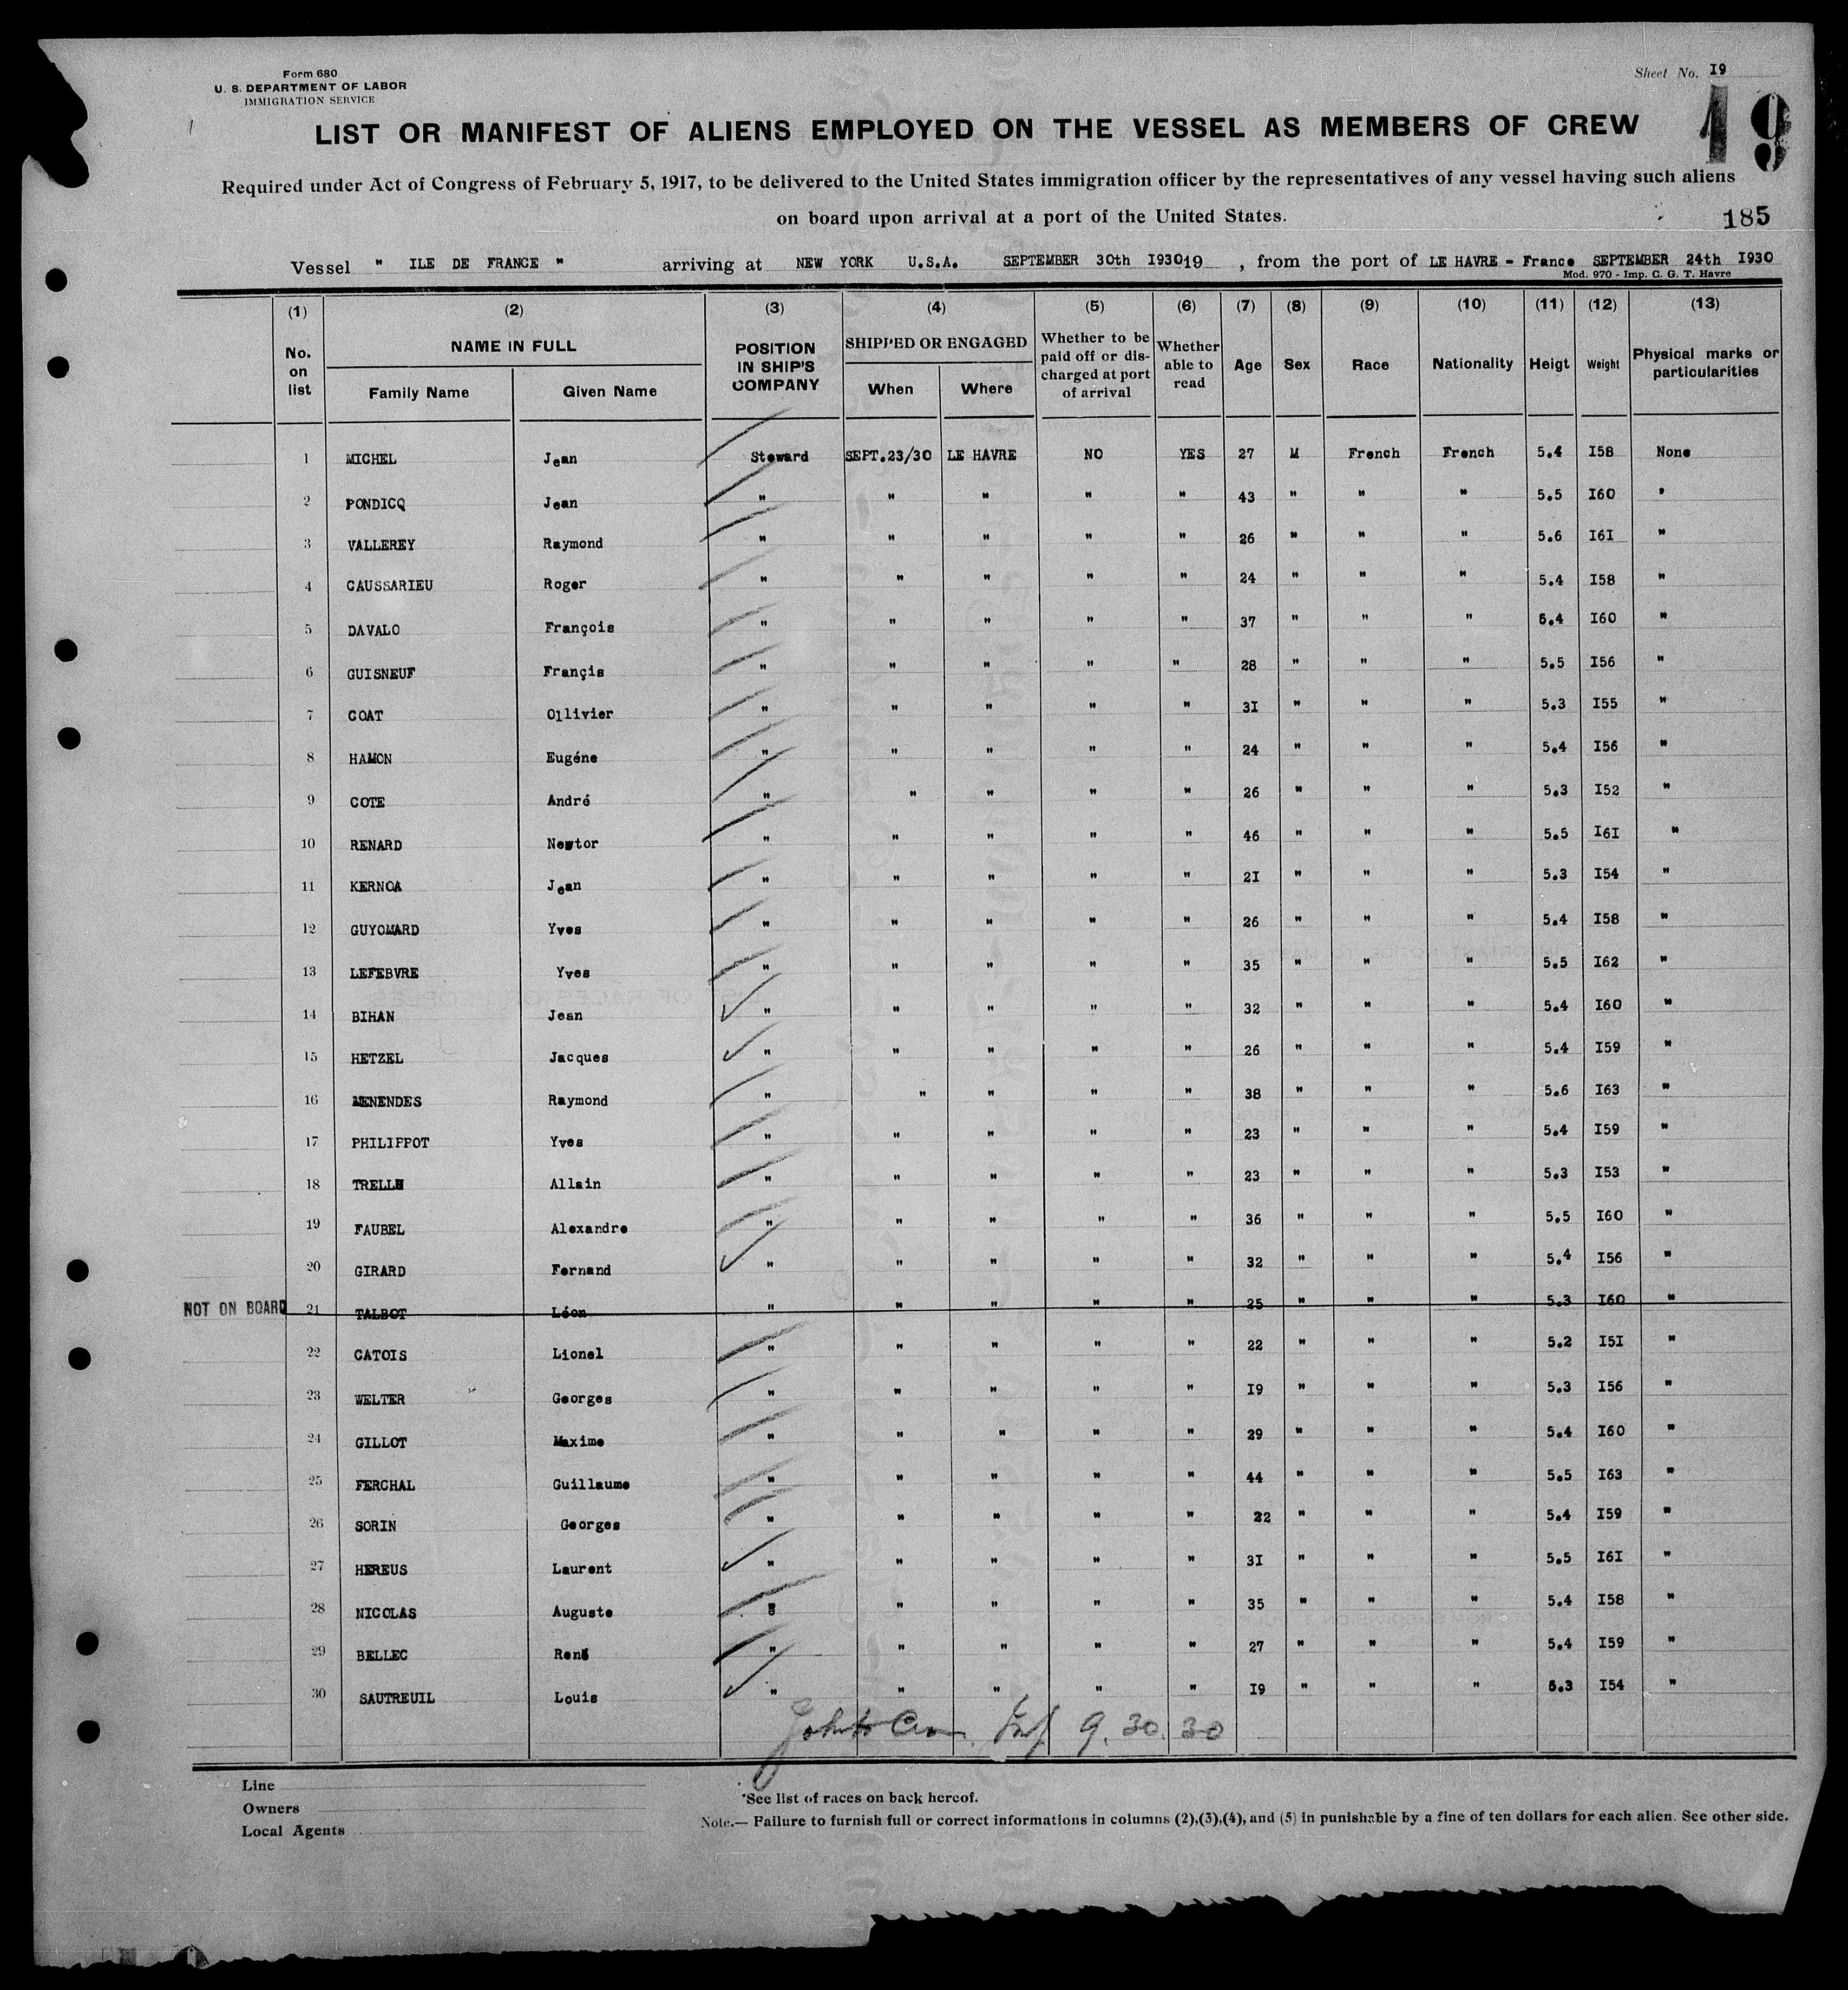 Form 680
U. S. DEPARTMENT OF LABOR
IMMIGRATION SERVICE
Sheet No. I9
19
LIST OR MANIFEST OF ALIENS EMPLOYED ON THE VESSEL AS MEMBERS OF CREW
Required under Act of Congress of February 5, 1917, to be delivered to the United States immigration officer by the representatives of any vessel having such aliens
on board upon arrival at a port of the United States.
185
Vessel " ILE DE FRANCE " arriving at NEW YORK U.S.A. SEPTEMBER 30th I93019 , from the port of LE HAVRE - France SEPTEMBER 24th I930
Mod. 970 - Imp. C. G. T. Havre
(1) (2) (3) (4) (5) (6) (7) (8) (9) (10) (11) (12) (13)
No. on list NAME IN FULL Family Name Given Name POSITION IN SHIP'S COMPANY SHIPPED OR ENGAGED When Where Whether to be paid off or discharged at port of arrival Whether able to read Age Sex Race Nationality Heigt Weight Physical marks or particularities
1 MICHEL Jean Steward SEPT.23/30 LE HAVRE NO YES 27 M French French 5.4 I58 None
2 PONDICQ Jean " " " " " 43 " " " 5.5 I60 "
3 VALLEREY Raymond " " " " " 26 " " " 5.6 I6I "
4 CAUSSARIEU Roger " " " " " 24 " " " 5.4 I58 "
5 DAVALO François " " " " " 37 " " " 5.4 I60 "
6 GUISNEUF Françis " " " " " 28 " " " 5.5 I56 "
7 COAT Ollivier " " " " " 3I " " " 5.3 I55 "
8 HAMON Eugéne " " " " " 24 " " " 5.4 I56 "
9 COTE André " " " " " 26 " " " 5.3 I52 "
10 RENARD Nestor " " " " " 46 " " " 5.5 I6I "
11 KERNOA Jean " " " " " 2I " " " 5.3 I54 "
12 GUYOMARD Yves " " " " " 26 " " " 5.4 I58 "
13 LEFEBVRE Yves " " " " " 35 " " " 5.5 I62 "
14 BIHAN Jean " " " " " 32 " " " 5.4 I60 "
15 HETZEL Jacques " " " " " 26 " " " 5.4 I59 "
16 MENENDES Raymond " " " " " 38 " " " 5.6 I63 "
17 PHILIPPOT Yves " " " " " 23 " " " 5.4 I59 "
18 Allain " " " " " 23 " " " 5.3 I53 "
19 FAUBEL Alexandre " " " " " 36 " " " 5.5 I60 "
20 GIRARD Fernand " " " " " 32 " " " 5.4 I56 "
NOT ON BOARD 21 TALBOT Léon " " " " " 25 " " " 5.3 I60 "
22 CATOIS Lionel " " " " " 22 " " " 5.2 I5I "
23 WELTER Georges " " " " " I9 " " " 5.3 I56 "
24 GILLOT Maxime " " " " " 29 " " " 5.4 I60 "
25 FERCHAL Guillaume " " " " " 44 " " " 5.5 I63 "
26 SORIN Georges " " " " " 22 " " " 5.4 I59 "
27 HEREUS Laurent " " " " " 3I " " " 5.5 I6I "
28 NICOLAS Auguste " " " " 35 " " " 5.4 I58 "
29 BELLEC René " " " " " 27 " " " 5.4 I59 "
30 SAUTREUIL Louis " " " " " I9 " " " 5.3 I54 "
9. 30. 30
Line
Owners
Local Agents
*See list of races on back hereof.
Note.— Failure to furnish full or correct informations in columns (2),(3),(4), and (5) in punishable by a fine of ten dollars for each alien. See other side.